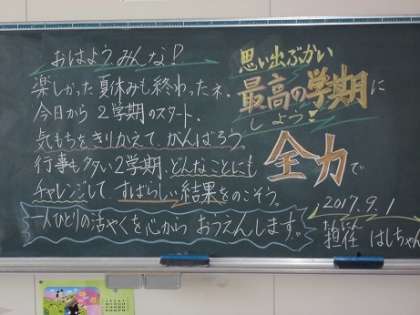 おはようみんな!
楽しかった夏休みも終わったネ、
今日から2学期のスタート、
気もちをきりかえてがんばろう。
行事も多い2学期、どんなことにも
チャレンジしてすばらしい結果をのこそう。
一人ひとりの活やくを心からおうえんします。
思い出ぶかい
最高の学期に
しよう!
全力で
2017.9.1
担任 はしちゃん